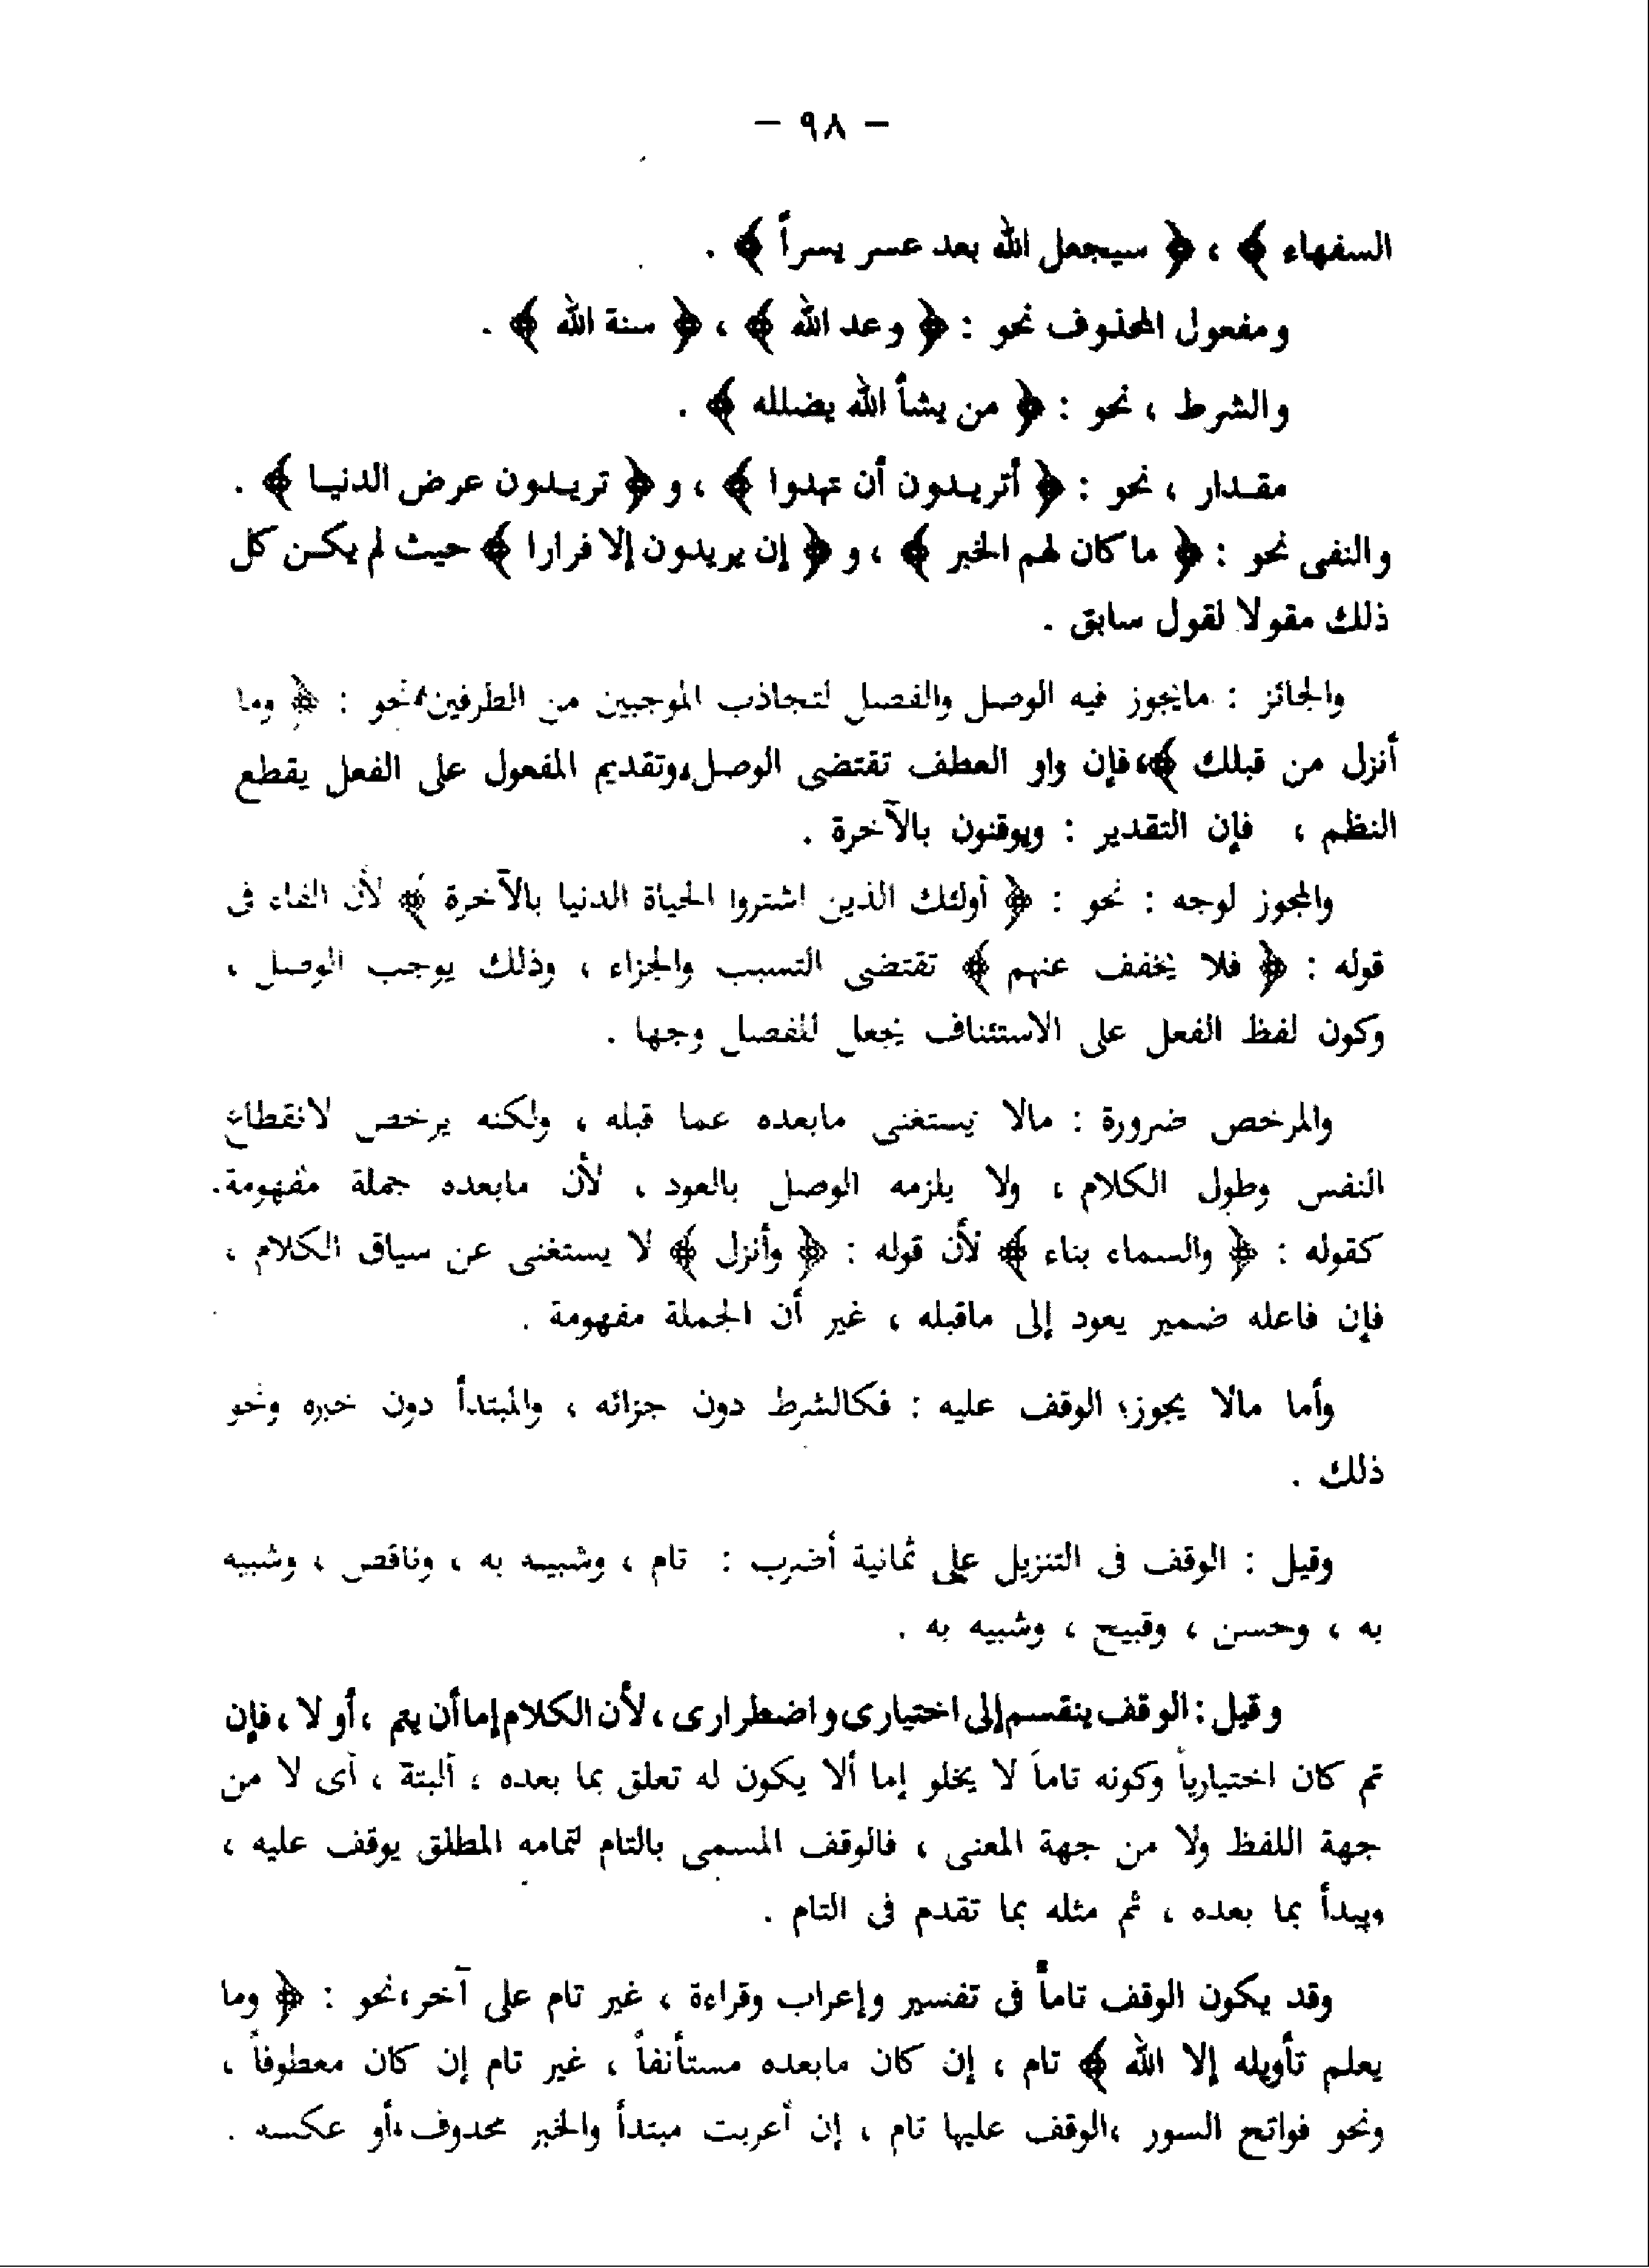 — ٩٨ —
السفهاء ﴾ ، ﴿ سيجعل الله بعد عسر يسراً ﴾ .
ومفعول المحذوف نحو : ﴿ وعد الله ﴾ ، ﴿ سنة الله ﴾ .
والشرط ، نحو : ﴿ من يشأ الله يضلله ﴾ .
مقـدار ، نحو : ﴿ أتريـدون أن تهدوا ﴾ ، و ﴿ تريـدون عرض الدنيـا ﴾ .
والنفى نحو : ﴿ ما كان لهم الخير ﴾ ، و ﴿ إن يريدون إلا فرارا ﴾ حيث لم يكـن كل
ذلك مقولا لقول سابق .
والجائز : مايجوز فيه الوصل والفصل لتجاذب الموجبين من الطرفين،نحو : ﴿ وما
أنزل من قبلك ﴾،فإن واو العطف تقتضى الوصل،وتقديم المفعول على الفعل يقطع
النظم ، فإن التقدير : ويوقنون بالآخرة .
والمجوز لوجه : نحو : ﴿ أولئك الذين اشتروا الحياة الدنيا بالآخرة ﴾ لأن الفاء فى
قوله : ﴿ فلا يخفف عنهم ﴾ تقتضى التسبب والجزاء ، وذلك يوجب الوصل ،
وكون لفظ الفعل على الاستئناف يجعل للفصل وجها .
والمرخص ضرورة : مالا يستغنى مابعده عما قبله ، ولكنه يرخص لانقطاع
النفس وطول الكلام ، ولا يلزمه الوصل بالعود ، لأن مابعده جملة مفهومة.
كقوله : ﴿ والسماء بناء ﴾ لأن قوله : ﴿ وأنزل ﴾ لا يستغنى عن سياق الكلام ،
فإن فاعله ضمير يعود إلى ماقبله ، غير أن الجملة مفهومة .
وأما مالا يجوز الوقف عليه : فكالشرط دون جزائه ، والمبتدأ دون خبره ونحو
ذلك .
وقيل : الوقف فى التنزيل على ثمانية أضرب : تام ، وشبيـه به ، وناقص ، وشبيه
به ، وحسن ، وقبيح ، وشبيه به .
وقيل : الوقف ينقسم إلى اختيارى واضطرارى ، لأن الكلام إما أن يتم ، أو لا ، فإن
تم كان اختيارياً وكونه تاماً لا يخلو إما ألا يكون له تعلق بما بعده ، ألبتة ، أى لا من
جهة اللفظ ولا من جهة المعنى ، فالوقف المسمى بالتام لتمامه المطلق يوقف عليه ،
ويبدأ بما بعده ، ثم مثله بما تقدم فى التام .
وقد يكون الوقف تاماً فى تفسير وإعراب وقراءة ، غير تام على آخر،نحو : ﴿ وما
يعلم تأويله إلا الله ﴾ تام ، إن كان مابعده مستأنفاً ، غير تام إن كان معطوفاً ،
ونحو فواتح السور ،الوقف عليها تام ، إن أعربت مبتدأ والخبر محدوف،أو عكسه .